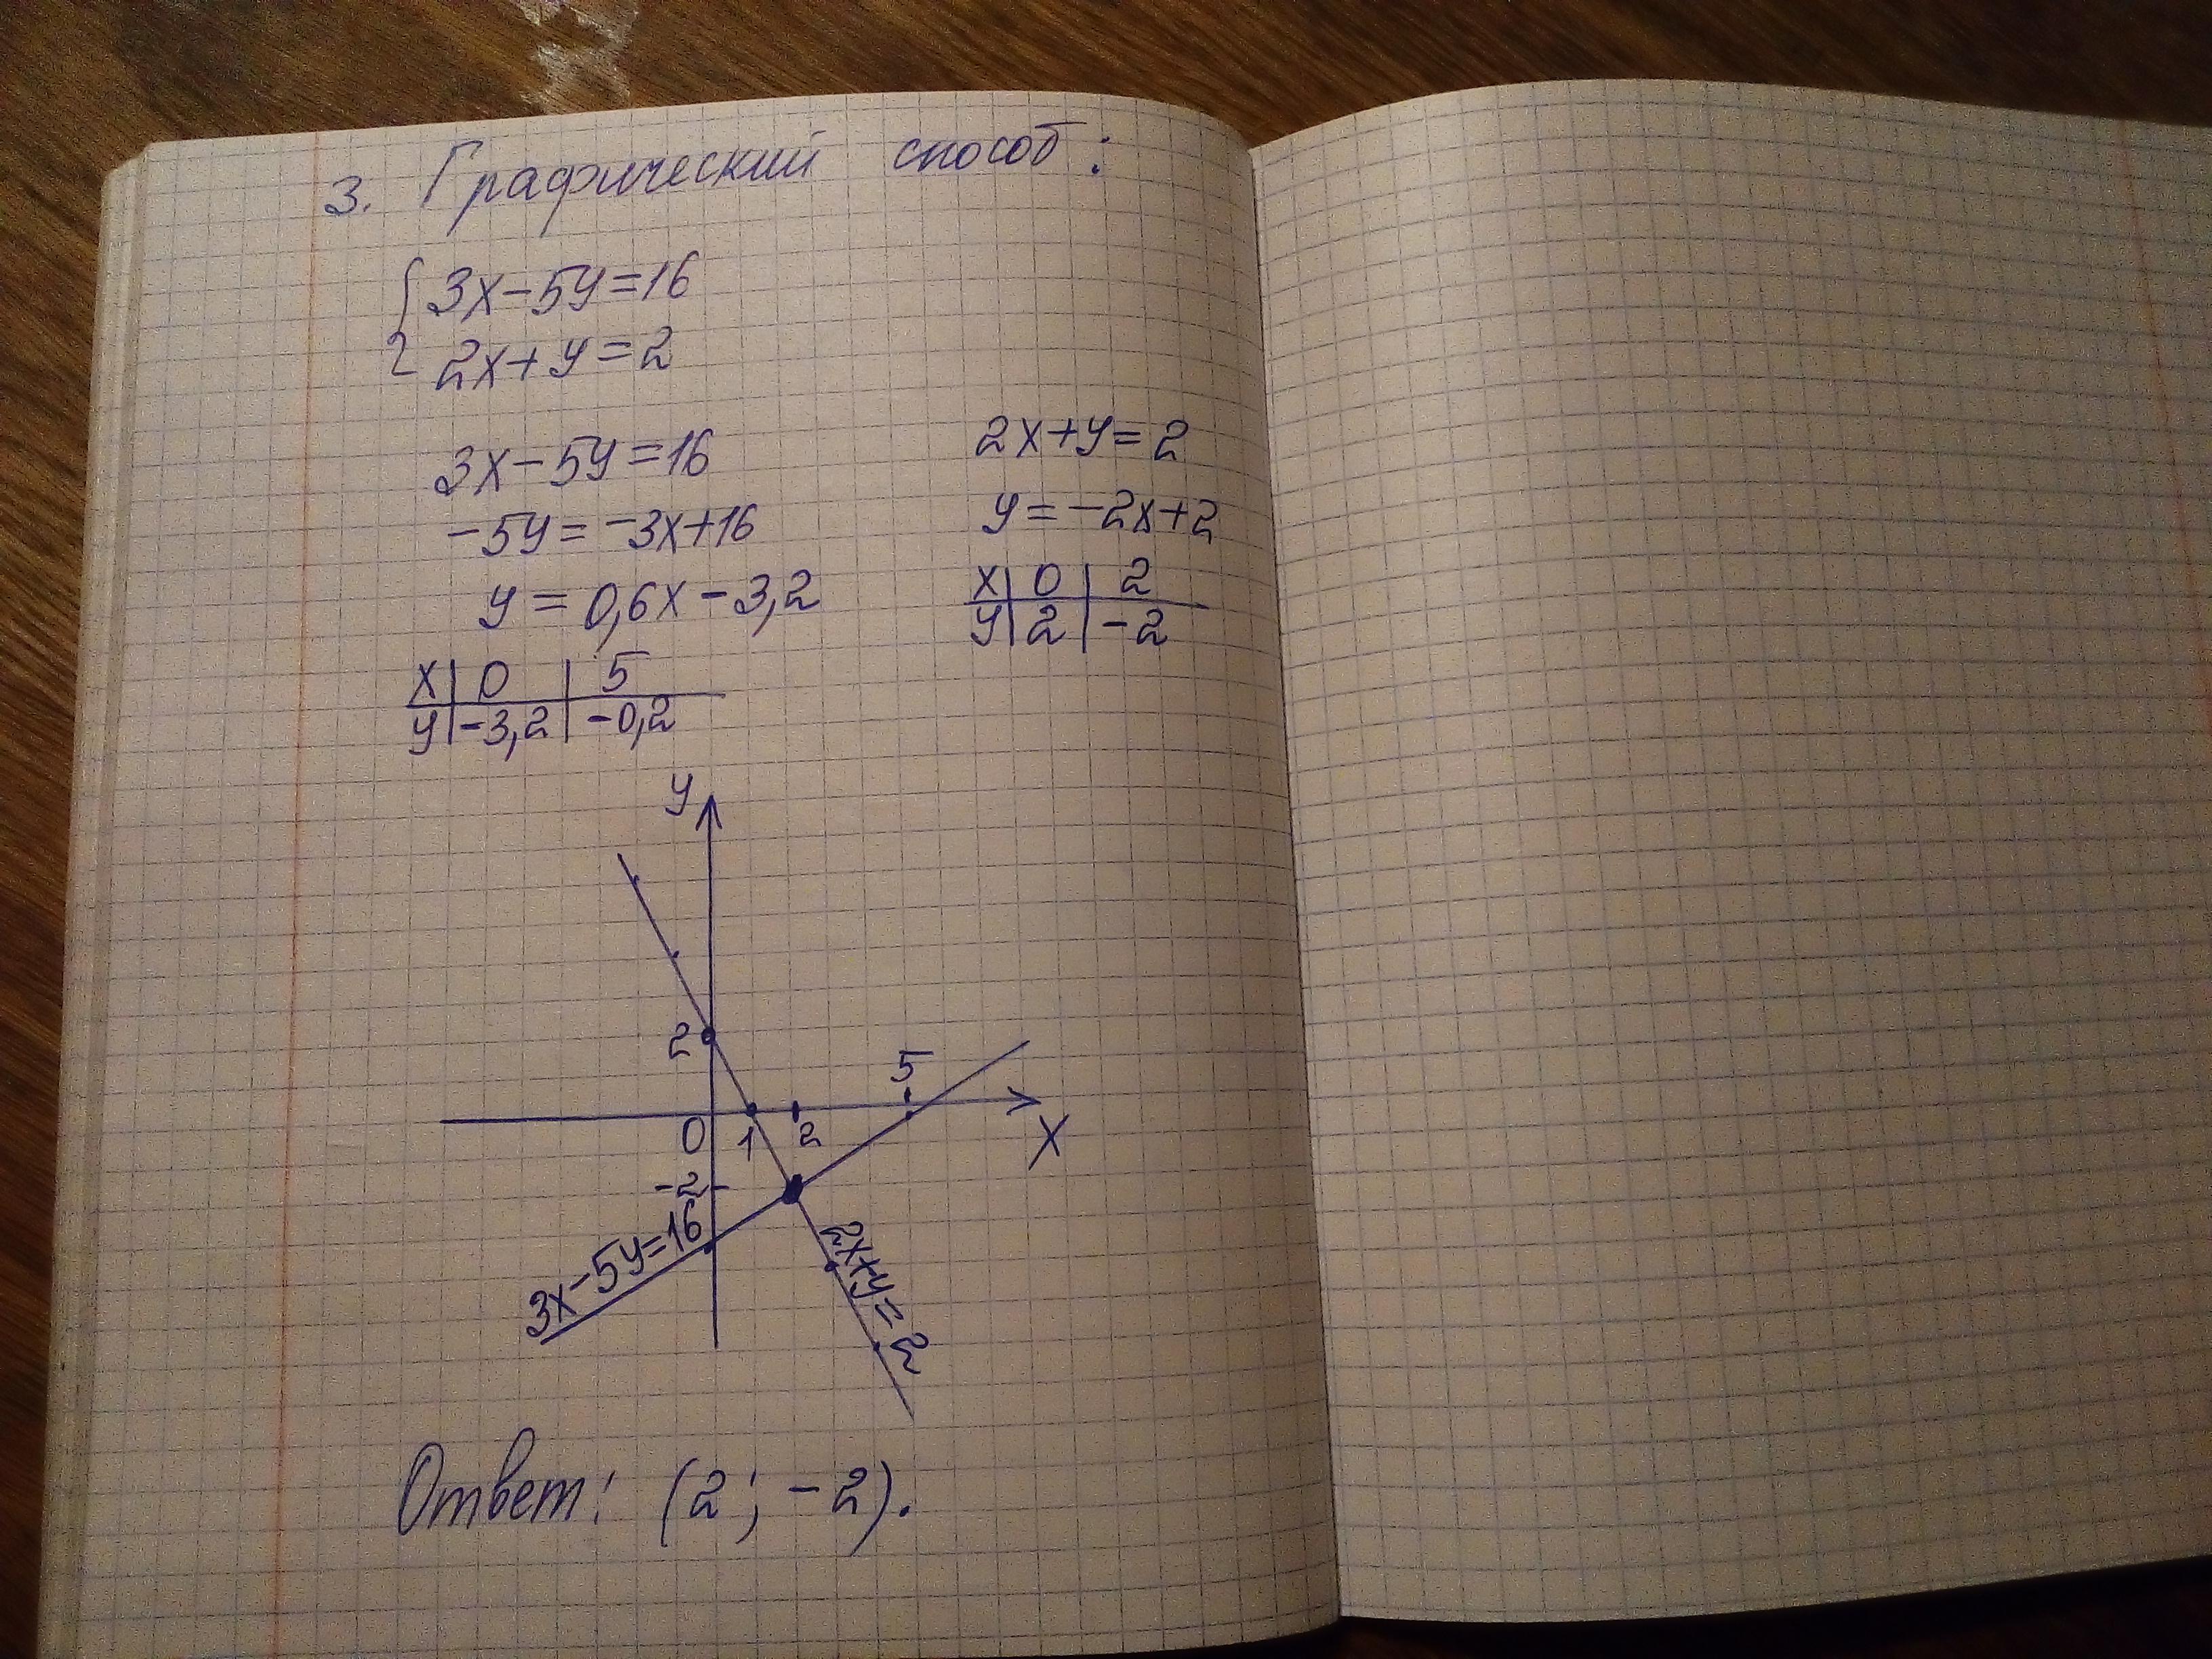 3. Графический способ:
{ 3x-5y=16
2x+y=2
3x-5y=16
-5y=-3x+16
y=0,6x-3,2
x | 0 | 5
y | -3,2 | -0,2
2x+y=2
y=-2x+2
x | 0 | 2
y | 2 | -2
y
2
5
0 1 2
x
-2
3x-5y=16
2x+y=2
Ответ: (2; -2).